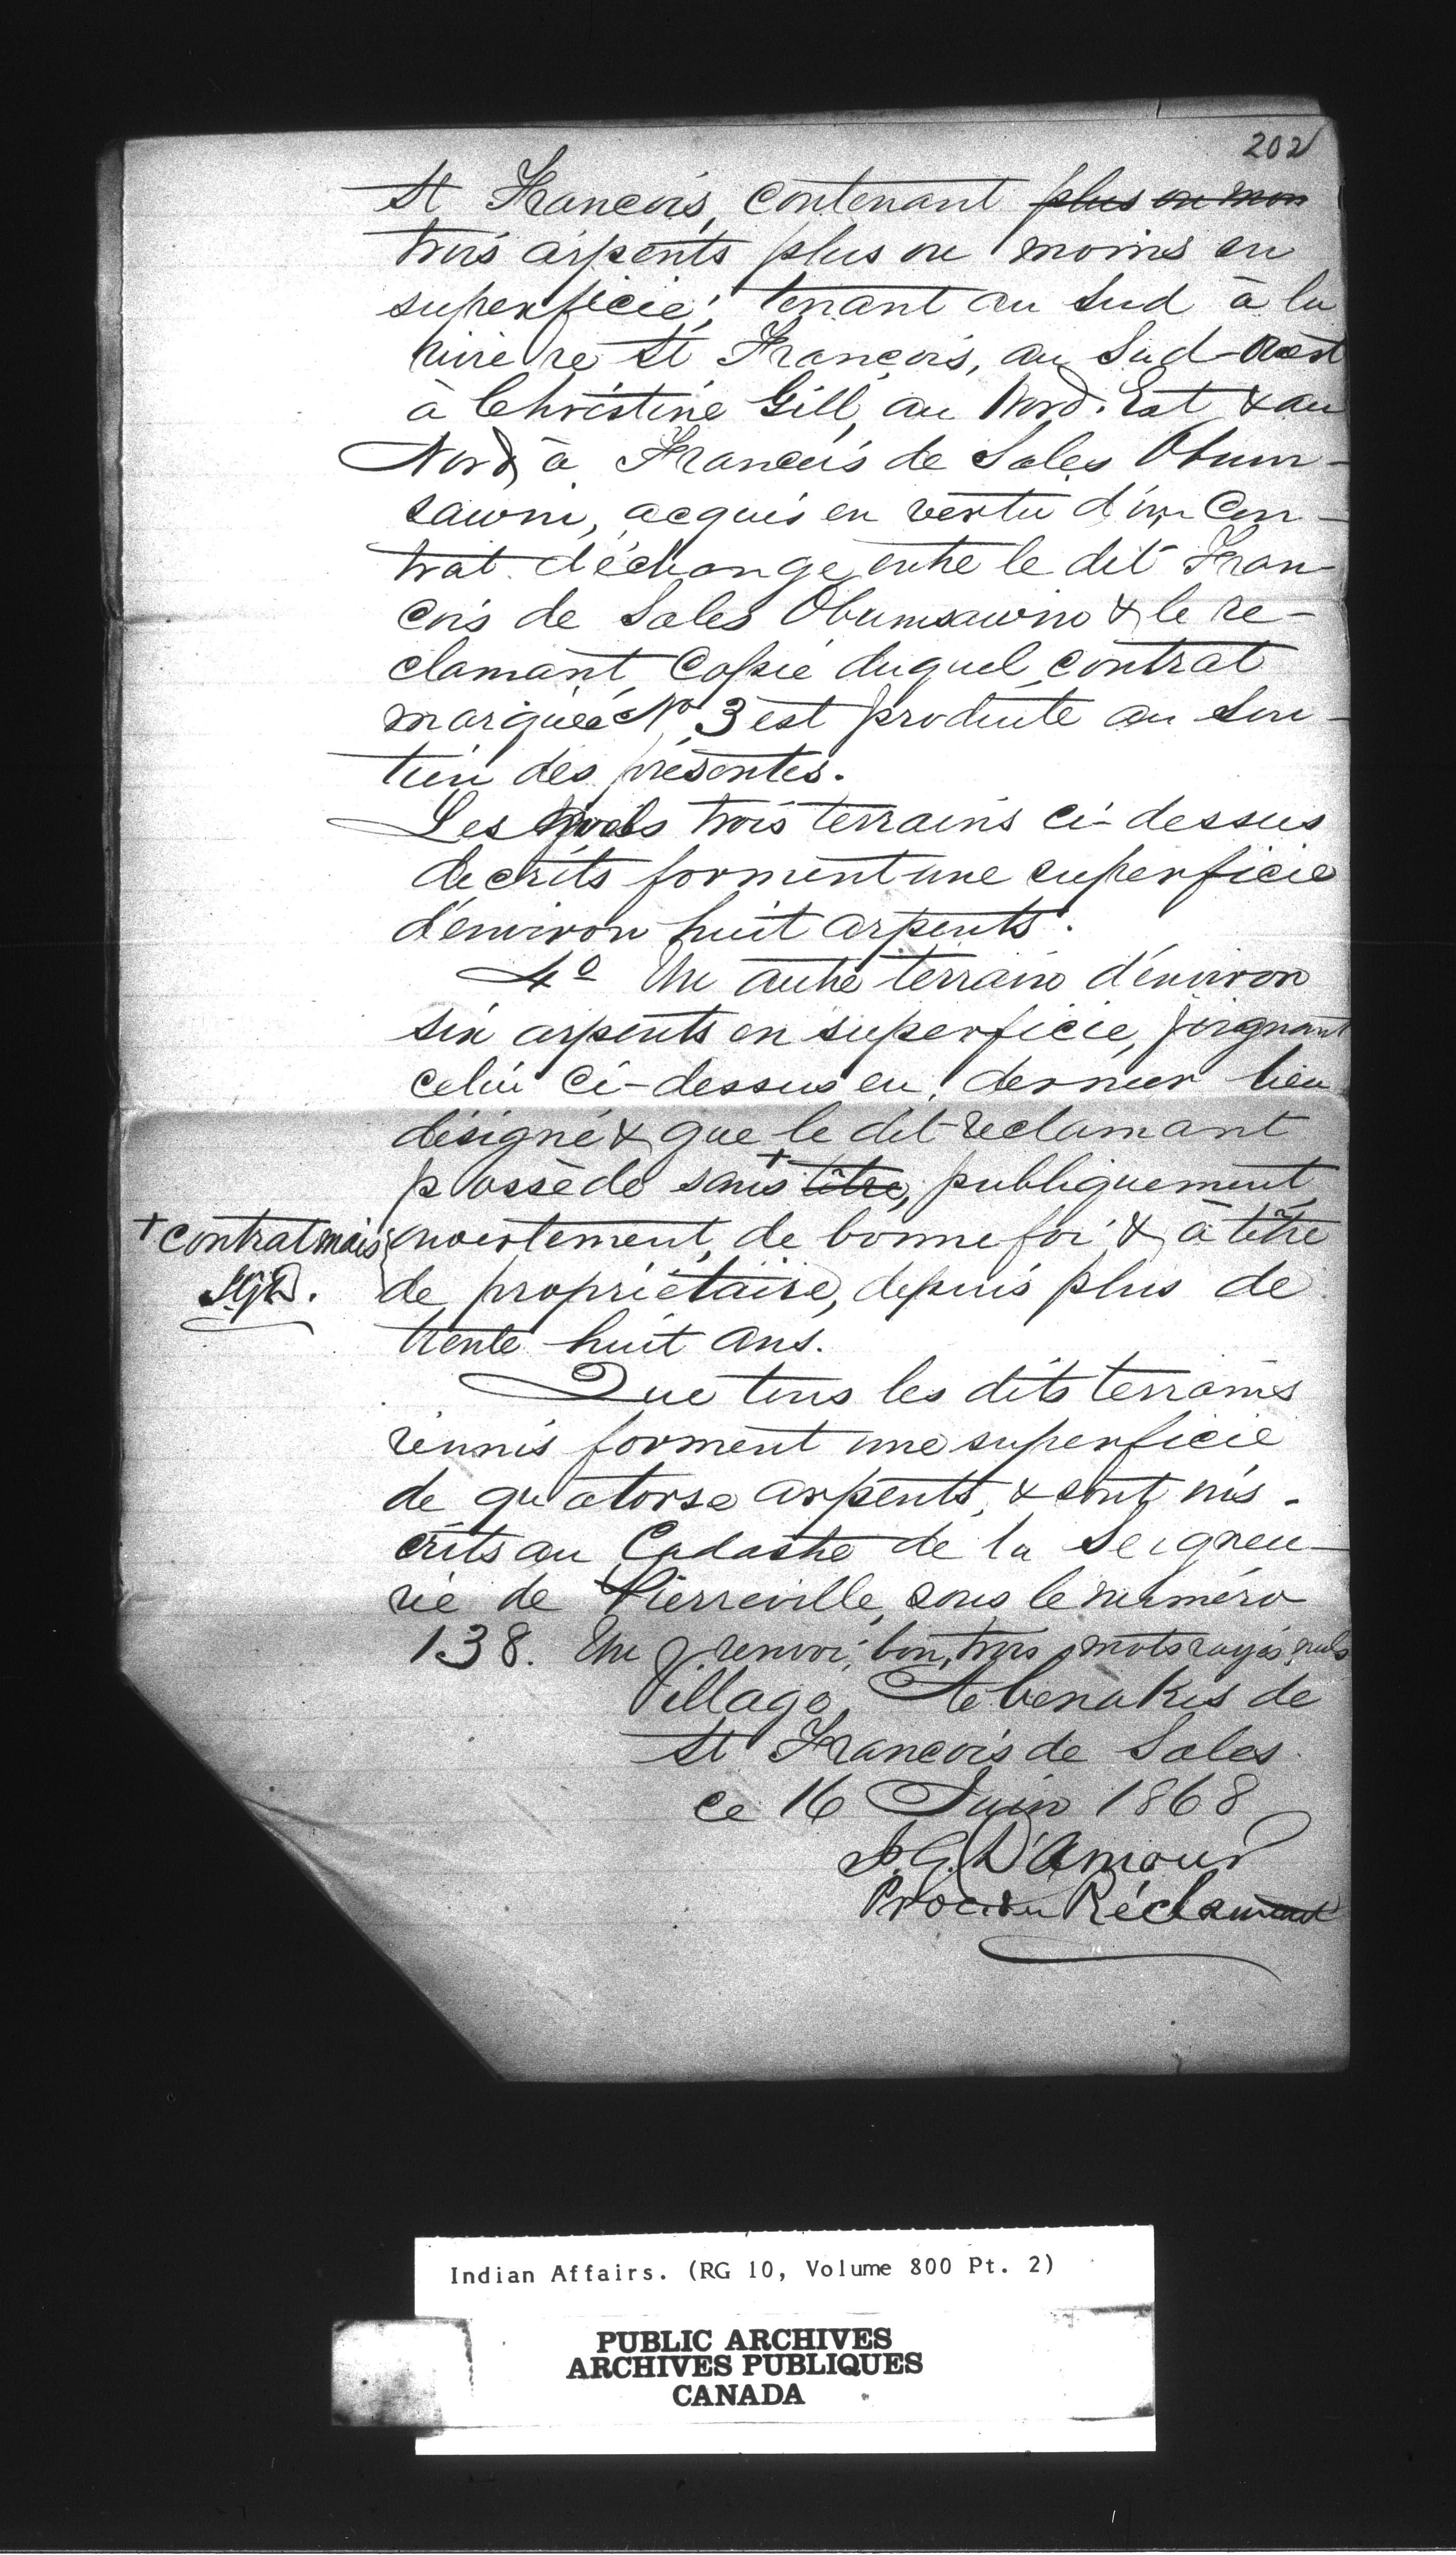 202
St François, contenant plus ou mon
trois arpents plus ou moins en
superficie; tenant au Sud à la
rivière St François, au Sud-Oest
à Christine Gill, au Nord-Est & au
Nord à François de Sales Obum-
sawin, acquis en vertu d'un Con-
trat d'échange entre le dit Fran
cois de Sales Obumsawin & le re-
clamant Copie duquel contrat
marquée No 3 est produite au Sou-
tien des présentes.
Les trois terrains ci-dessus
decrits forment une superficie
d'environ huit arpents.
4o Un autre terrain d'environ
six arpents en superficie, joignant
celui ci-dessus en dernier lieu
désigné & que le dit reclamant
possède sans + titre, publiquement
+ contrat mais
ouvertement, de bonne foi & à titre
J.G.D.
de propriétaire, depuis plus de
trente huit ans.
Que tous les dits terrains
réunis forment une superficie
de quatorse arpents, & sont ins-
crits au Cadastre de la Seigneu-
rie de Pierreville, sous le numéro
138. Un renvoi bon, trois mots rayés nuls
Village Abenakis de
St François de Sales
ce 16 Juin 1868
J.G. D'Amour
Proc. du Réclamant
Indian Affairs. (RG 10, Volume 800 Pt. 2)
PUBLIC ARCHIVES
ARCHIVES PUBLIQUES
CANADA